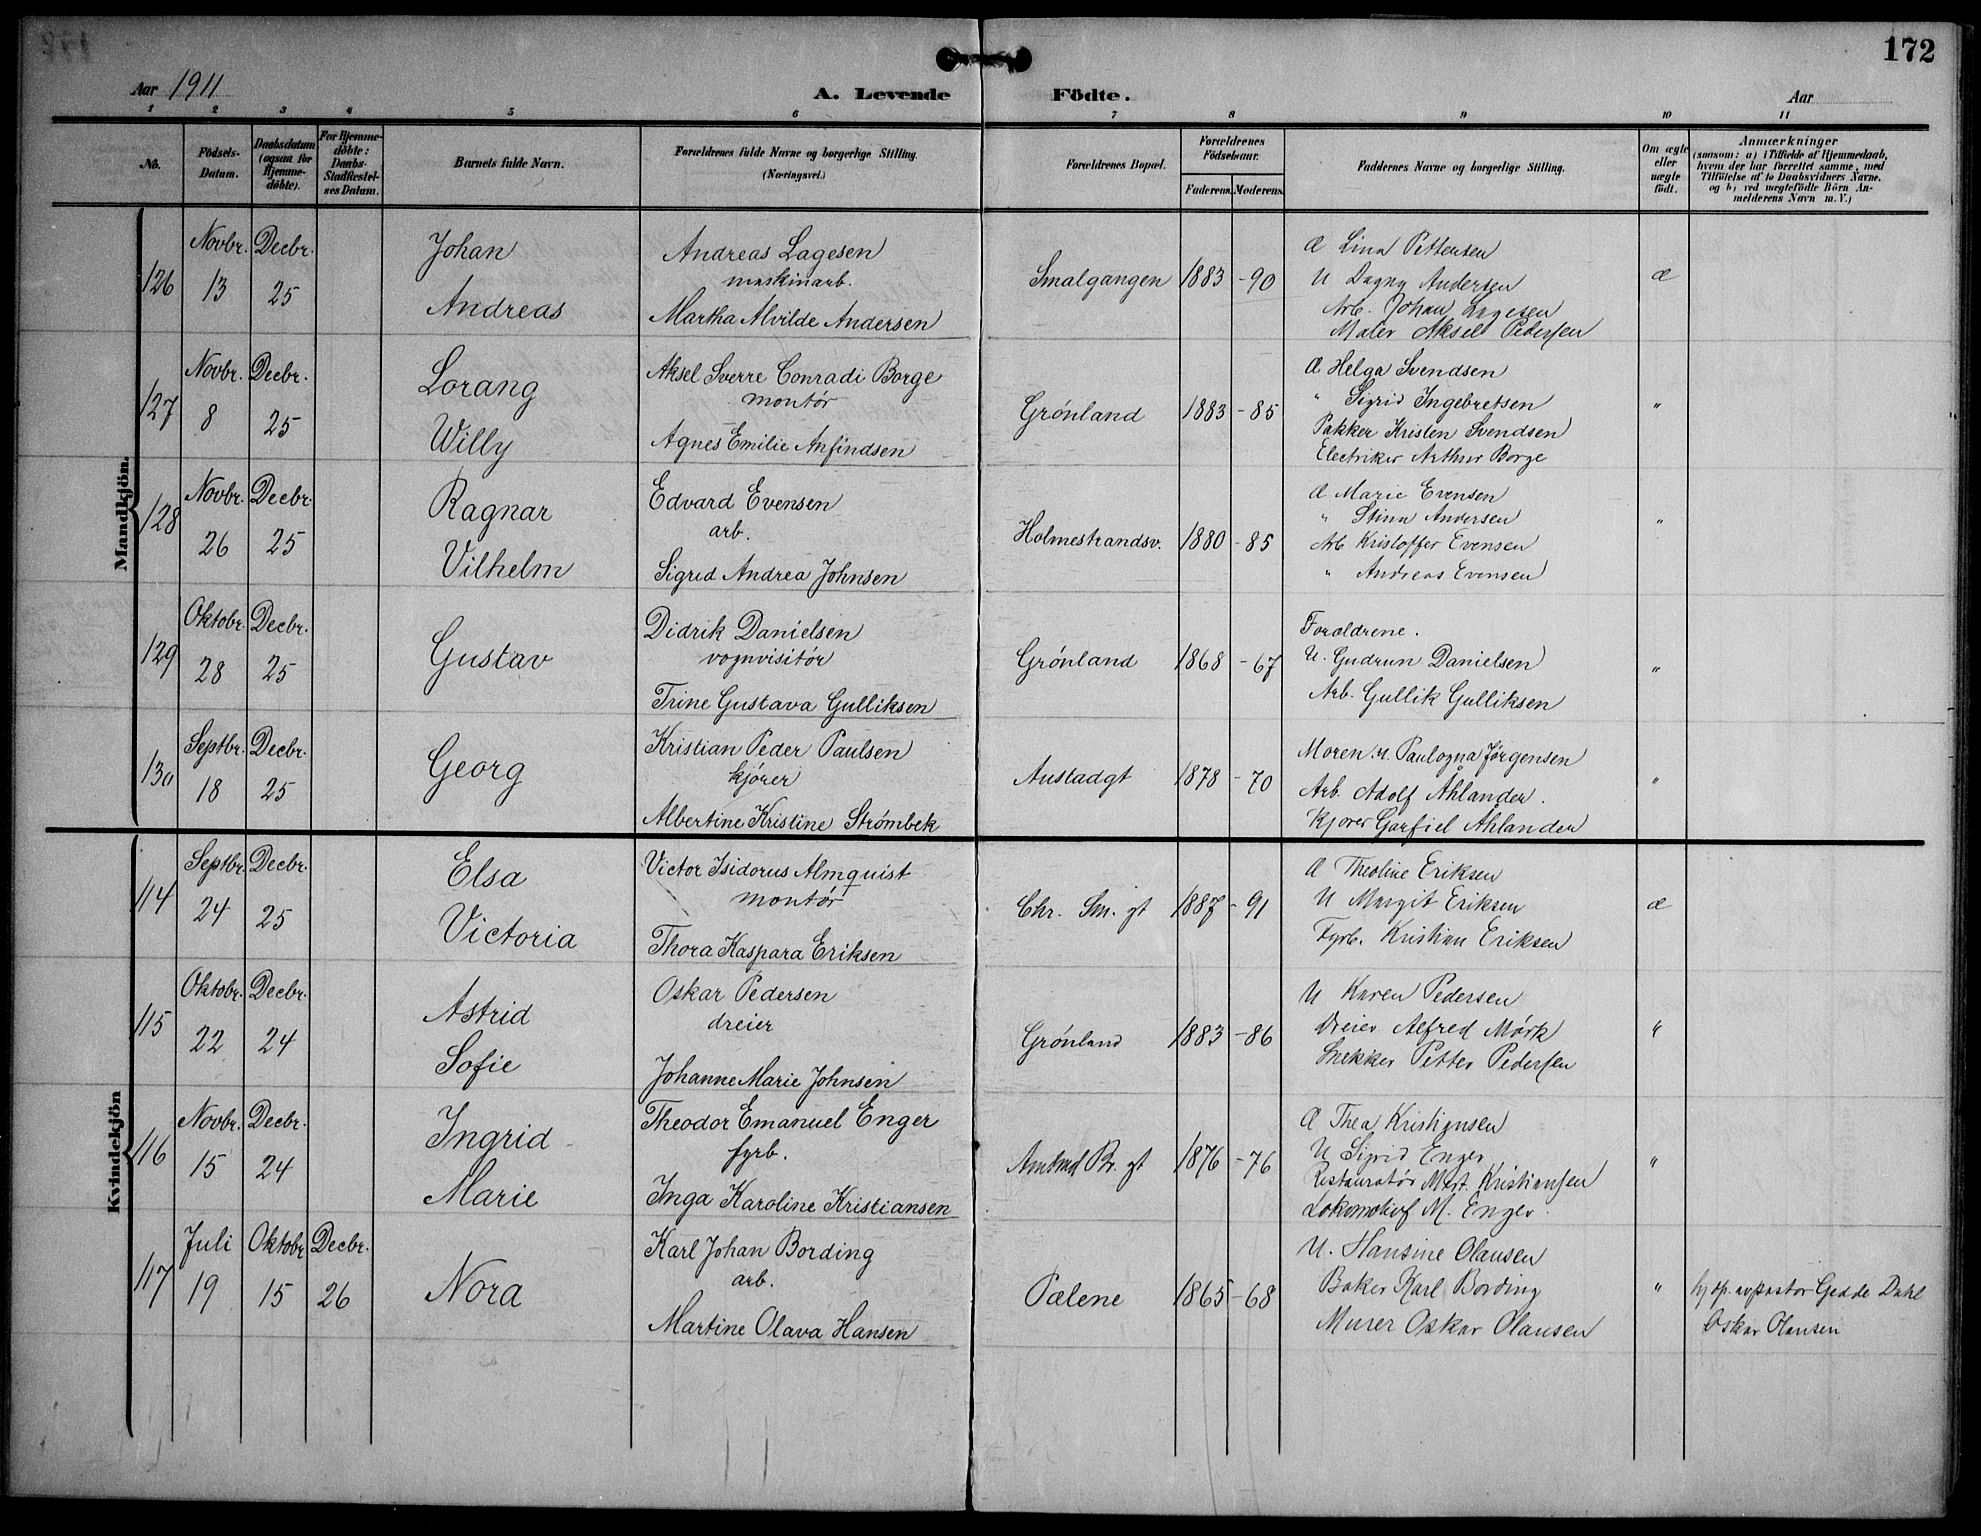 172
Aar 1911
A. Levende Födte.
Aar
1 2 3 4 5 6 7 8 9 10 11
No.
Födsels-Datum.
Daabsdatum (ogsaa for Hjemme-döbte).
For Hjemme-döbte: Daabs-Stadfæstel-ses Datum.
Barnets fulde Navn.
Forældrenes fulde Navne og borgerlige Stilling. (Næringsvei.)
Forældrenes Bopæl.
Forældrenes Födselsaar.
Faderens. Moderens.
Faddernes Navne og borgerlige Stilling.
Om ægte eller uægte födt.
Anmærkninger
(saasom: a) i Tilfælde af Hjemmedaab,
hvem der har forrettet samme, med
Tilföielse af to Daabsvidners Navne.
og b) ved uægtefödte Börn An-
melderens Navn m. V.)
Mandkjön.
126 Novbr. 13 Decbr. 25
Johan
Andreas
Andreas Lagesen
maskinarb.
Martha Alvilde Andersen
Smalgangen 1883 - 90
Æ Lina Pettersen
U Dagny Andersen
Arb. Johan Lagesen
Maler Aksel Pedersen
æ
127 Novbr. 8 Decbr. 25
Lorang
Willy
Aksel Sverre Conradi Borge
montør
Agnes Emilie Anfindsen
Grønland 1883 - 85
Æ Helga Svendsen
" Sigrid Ingebretsen
Pakker Kristen Svendsen
Electriker Arthur Borge
"
128 Novbr. 26 Decbr. 25
Ragnar
Vilhelm
Edvard Evensen
arb.
Sigrid Andrea Johnsen
Holmestrandsv. 1880 - 85
Æ Marie Evensen
" Stina Andersen
Arb Kristoffer Evensen
" Andreas Evensen
"
129 Oktobr. 28 Decbr. 25
Gustav
Didrik Danielsen
vognvisitør
Trine Gustava Gulliksen
Grønland 1868 - 67
Forældrene.
U. Gudrun Danielsen
Arb. Gullik Gulliksen
"
130 Septbr. 18 Decbr. 25
Georg
Kristian Peder Paulsen
kjører
Albertine Kristine Strømbek
Austadgt 1878 - 70
Moren. U. Paulogna Jørgensen
Arb. Adolf Åhlander.
Kjører Garfiel Åhlander
"
Kvindekjön
114 Septbr. 24 Decbr. 25
Elsa
Victoria
Victor Isidorus Almquist
montør
Thora Kaspara Eriksen
Chr. Sm. gt 1887 - 91
Æ Theoline Eriksen
U Margit Eriksen
Fyrb. Kristian Eriksen
æ
115 Oktobr. 22 Decbr. 24
Astrid
Sofie
Oskar Pedersen
dreier
Johanne Marie Johnsen
Grønland 1883 - 86
U Karen Pedersen
Dreier Alfred Mørk
Snekker Petter Pedersen
"
116 Novbr. 15 Decbr. 24
Ingrid
Marie
Theodor Emanuel Enger
fyrb.
Inga Karoline Kristiansen
Br. gt 1876 - 76
Æ Thea Kristiansen
U Sigrid Enger
Restauratør Mart. Kristiansen
Lokomotivf M. Enger.
"
117 Juli 19 Oktobr 15 Decbr. 26
Nora
Karl Johan Bording
arb.
Martine Olava Hansen
Pælene 1865 - 68
U. Hansine Olausen
Baker Karl Bording
Murer Oskar Olausen
"
hjdp. av pastor Gedde Dahl
Oskar Olausen